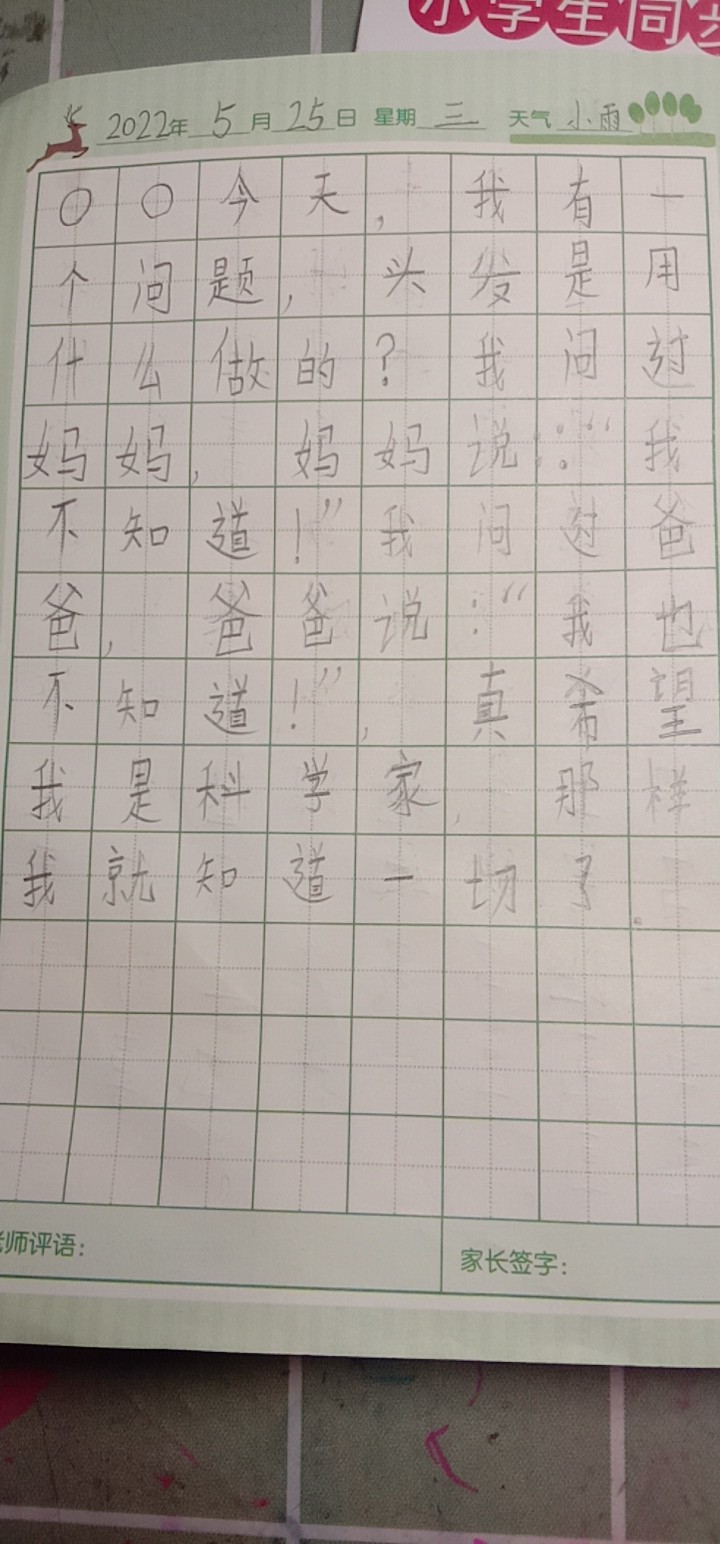 小学生同步
2022年 5月 25日 星期 三 天气 小雨
○○今天，我有一
个问题，头发是用
什么做的？我问过
妈妈，妈妈说：“我
不知道！”我问过爸
爸，爸爸说：“我也
不知道！”，真希望
我是科学家，那样
我就知道一切了。
老师评语：
家长签字：